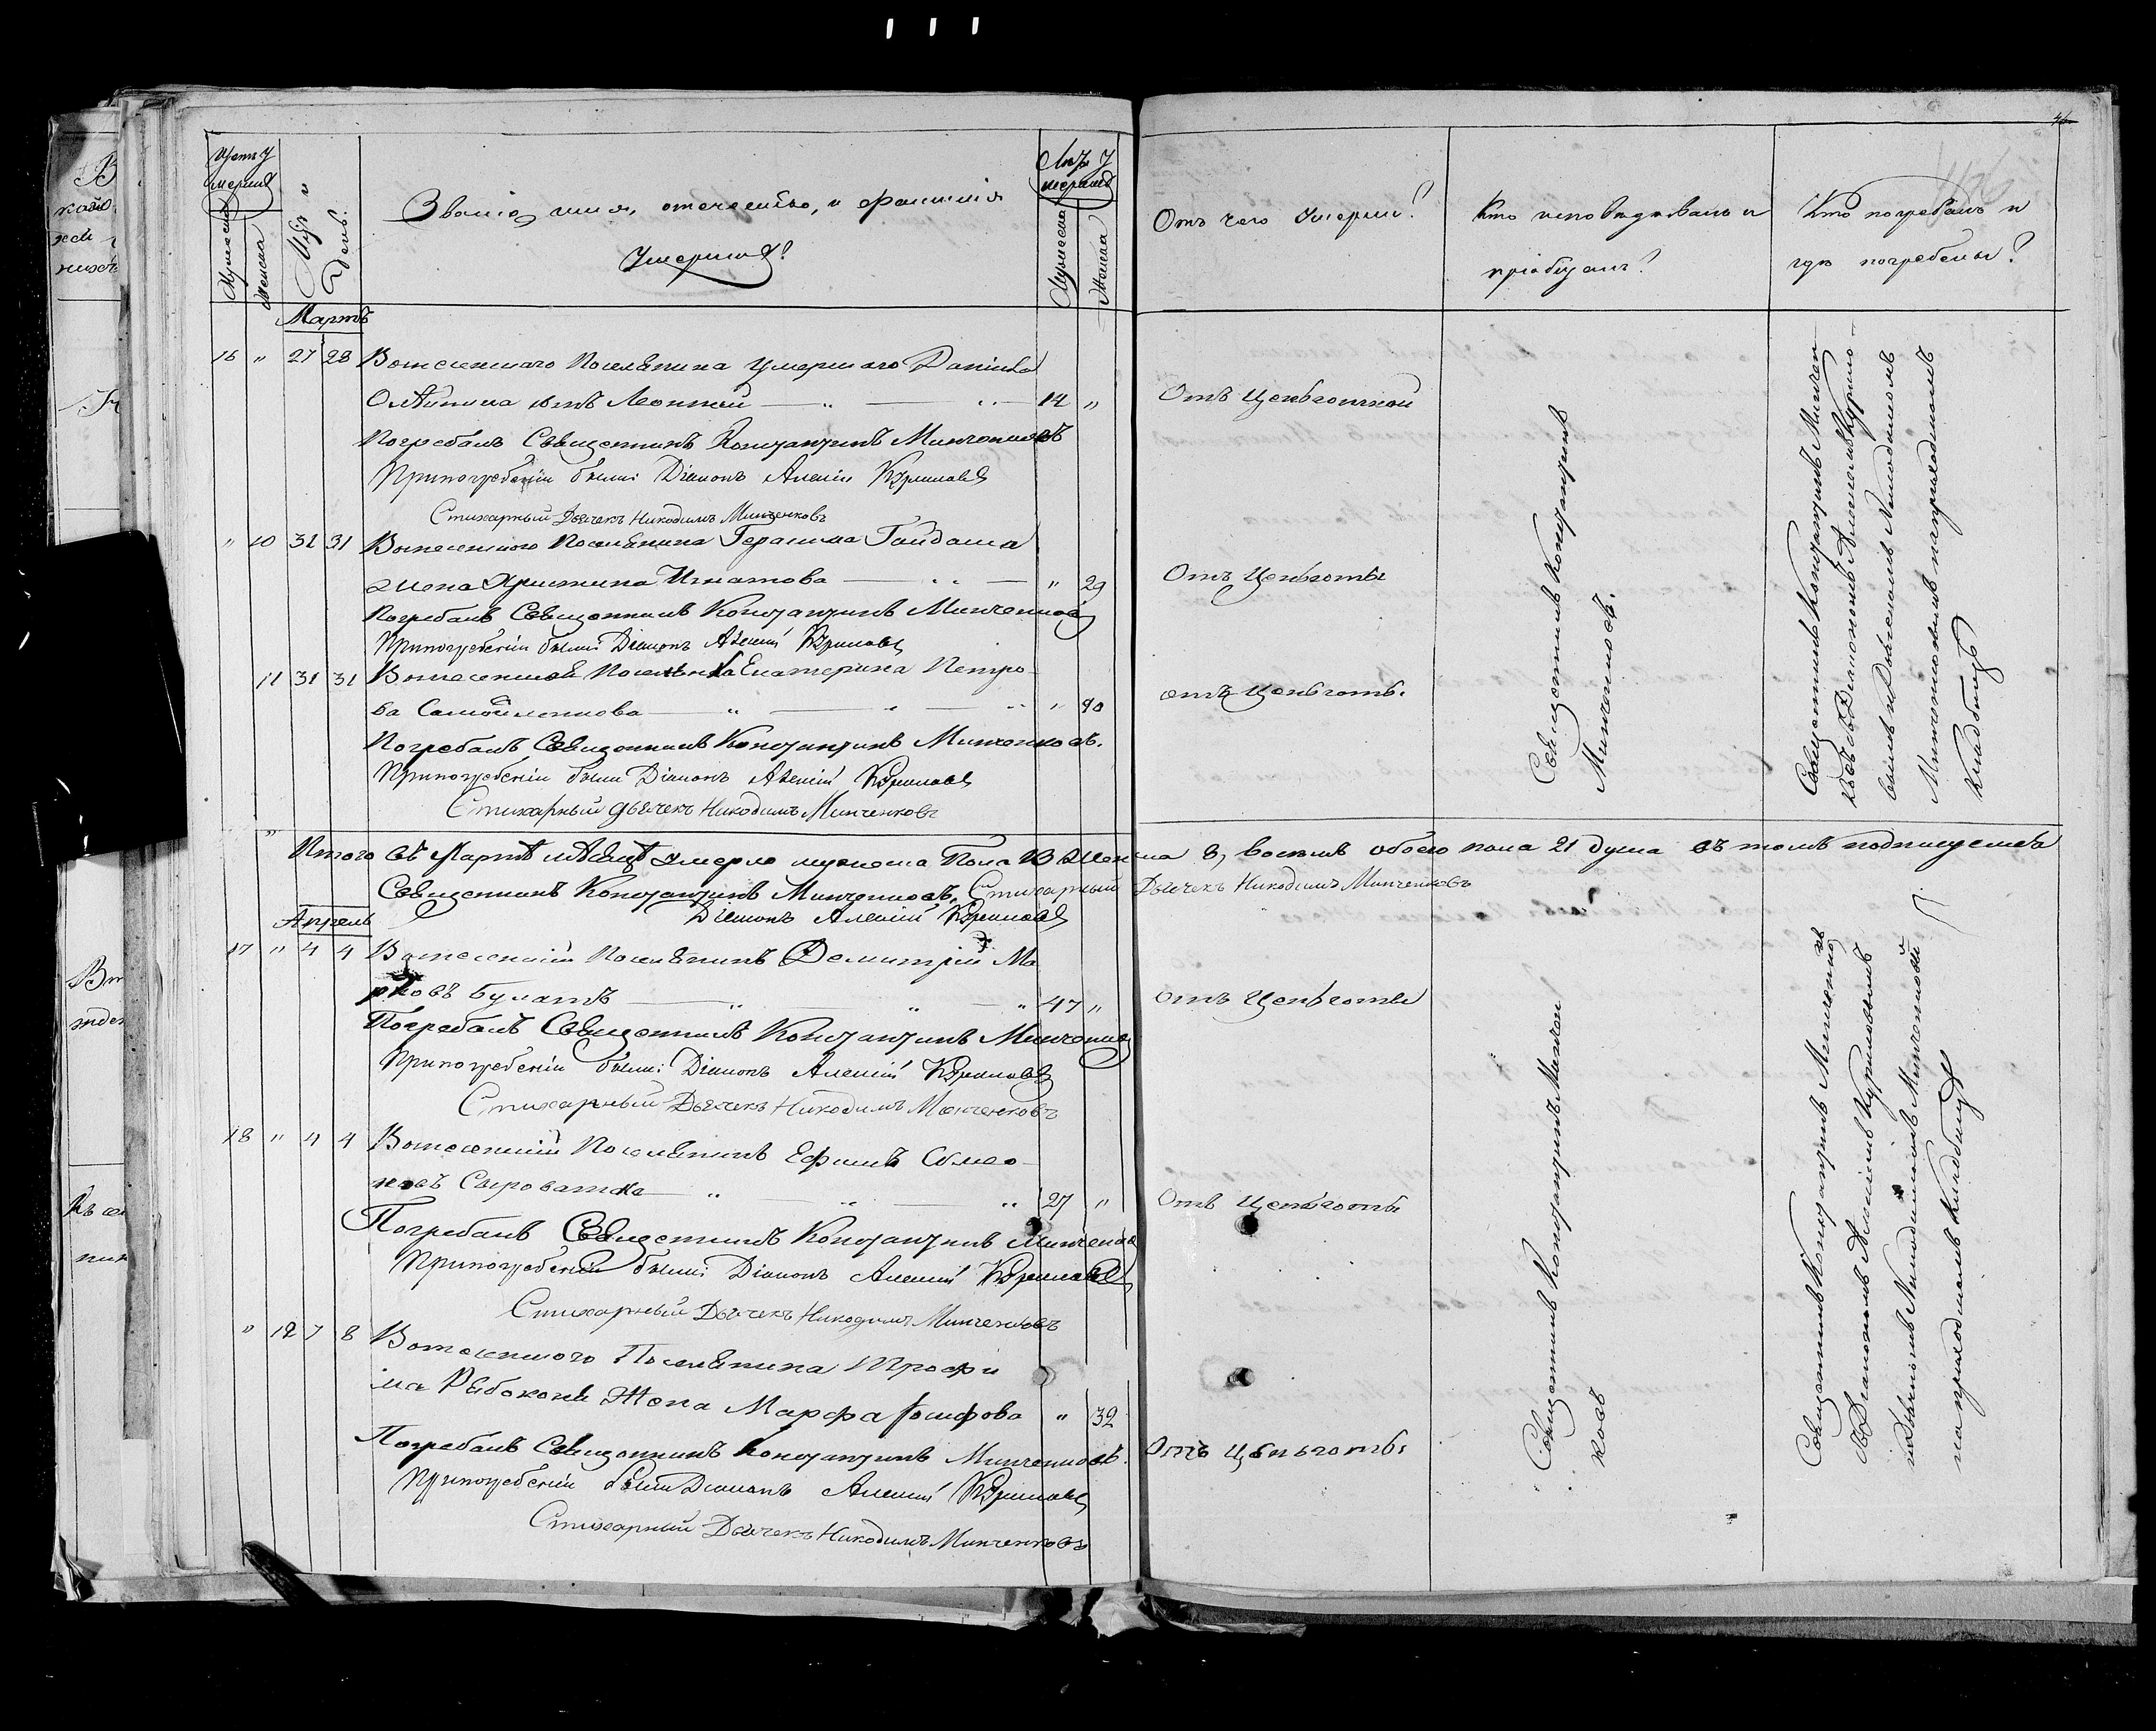 Счетъ умершихъ
Мужеска
Женска
Мѣс. и День.
Званіе, имя, отечество, и фамилія
Умершихъ?
Лѣта умершихъ
Мужеска
Женска
Отъ чего умерли?
Кто исповѣдывалъ и
пріобщалъ?
Кто погребалъ и
гдѣ погребены?
Мартъ
16 " 27 28 Вотесенскаго Поселянина умершаго Даніила
сынъ Леонтій 14 " Отъ
Погребалъ Священникъ Константинъ Минченковъ
При погребеніи были: Діаконъ Алексій Куриловъ
Стихарный Дьячекъ Никодимъ Минченковъ
" 10 31 31 Вотесенскаго Поселянина Герасима Гайдаша
жена Христина Игнатова " 29 Отъ Цынготы
Погребалъ Священникъ Константинъ Минченковъ
При погребеніи были: Діаконъ Алексій Куриловъ
11 31 31 Екатерина Петро-
ва Самойленкова " 90 отъ Цынготы.
Погребалъ Священникъ Константинъ Минченковъ.
При погребеніи были Діаконъ Алексій Куриловъ
Стихарный дьячекъ Никодимъ Минченковъ
Священникъ Константинъ
Минченковъ.
Священникъ Константинъ Минчен-
ковъ съ Діакономъ Алексіемъ Курило-
вымъ и Дьячкомъ Никодимомъ
Минченковымъ на приходскомъ
кладбищѣ
Итого въ Мартѣ мѣсяцѣ умерло мужеска Пола 13 Женска 8, всехъ обоего пола 21 душа въ томъ подписуемся
Священникъ Константинъ Минченковъ. Стихарный Дьячекъ Никодимъ Минченковъ
Діаконъ Алексій Куриловъ
Апрель
17 " 4 4 Поселянинъ Димитрій Ма-
рковъ Булатъ 47 " отъ Цынготы
Погребалъ Священникъ Константинъ Минченковъ
При погребеніи были: Діаконъ Алексій Куриловъ
Стихарный Дьячекъ Никодимъ Минченковъ
18 " 4 4 Поселянинъ Ефимъ Симео-
новъ Сыроватка 27 " Отъ Цынготы
Погребалъ Священникъ Константинъ Минченковъ
При погребеніи были: Діаконъ Алексій Куриловъ
Стихарный Дьячекъ Никодимъ Минченковъ
" 12 7 8 Поселянина Трофи
ма Рыбоконя Жена Марфа Іосифова " 32
Погребалъ Священникъ Константинъ Минченковъ. Отъ Цынготы
При погребеніи были Діаконъ Алексій Куриловъ
Стихарный Дьячекъ Никодимъ Минченковъ
Священникъ Константинъ Минчен
ковъ
Священникъ Константинъ Минченковъ
съ Діакономъ Алексіемъ Куриловымъ
и Дьячкомъ Никодимомъ Минченковымъ
на приходскомъ кладбищѣ